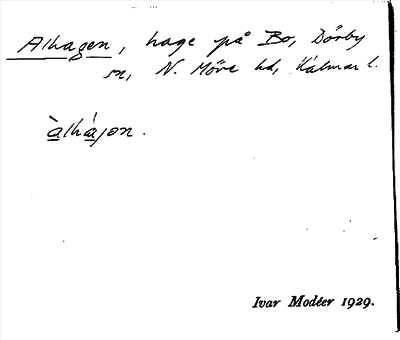 Alhagen, hage på Bo, Dörby
sn, N. Möre hd, Kalmar l.
àlhájon.
Ivar Modéer 1929.